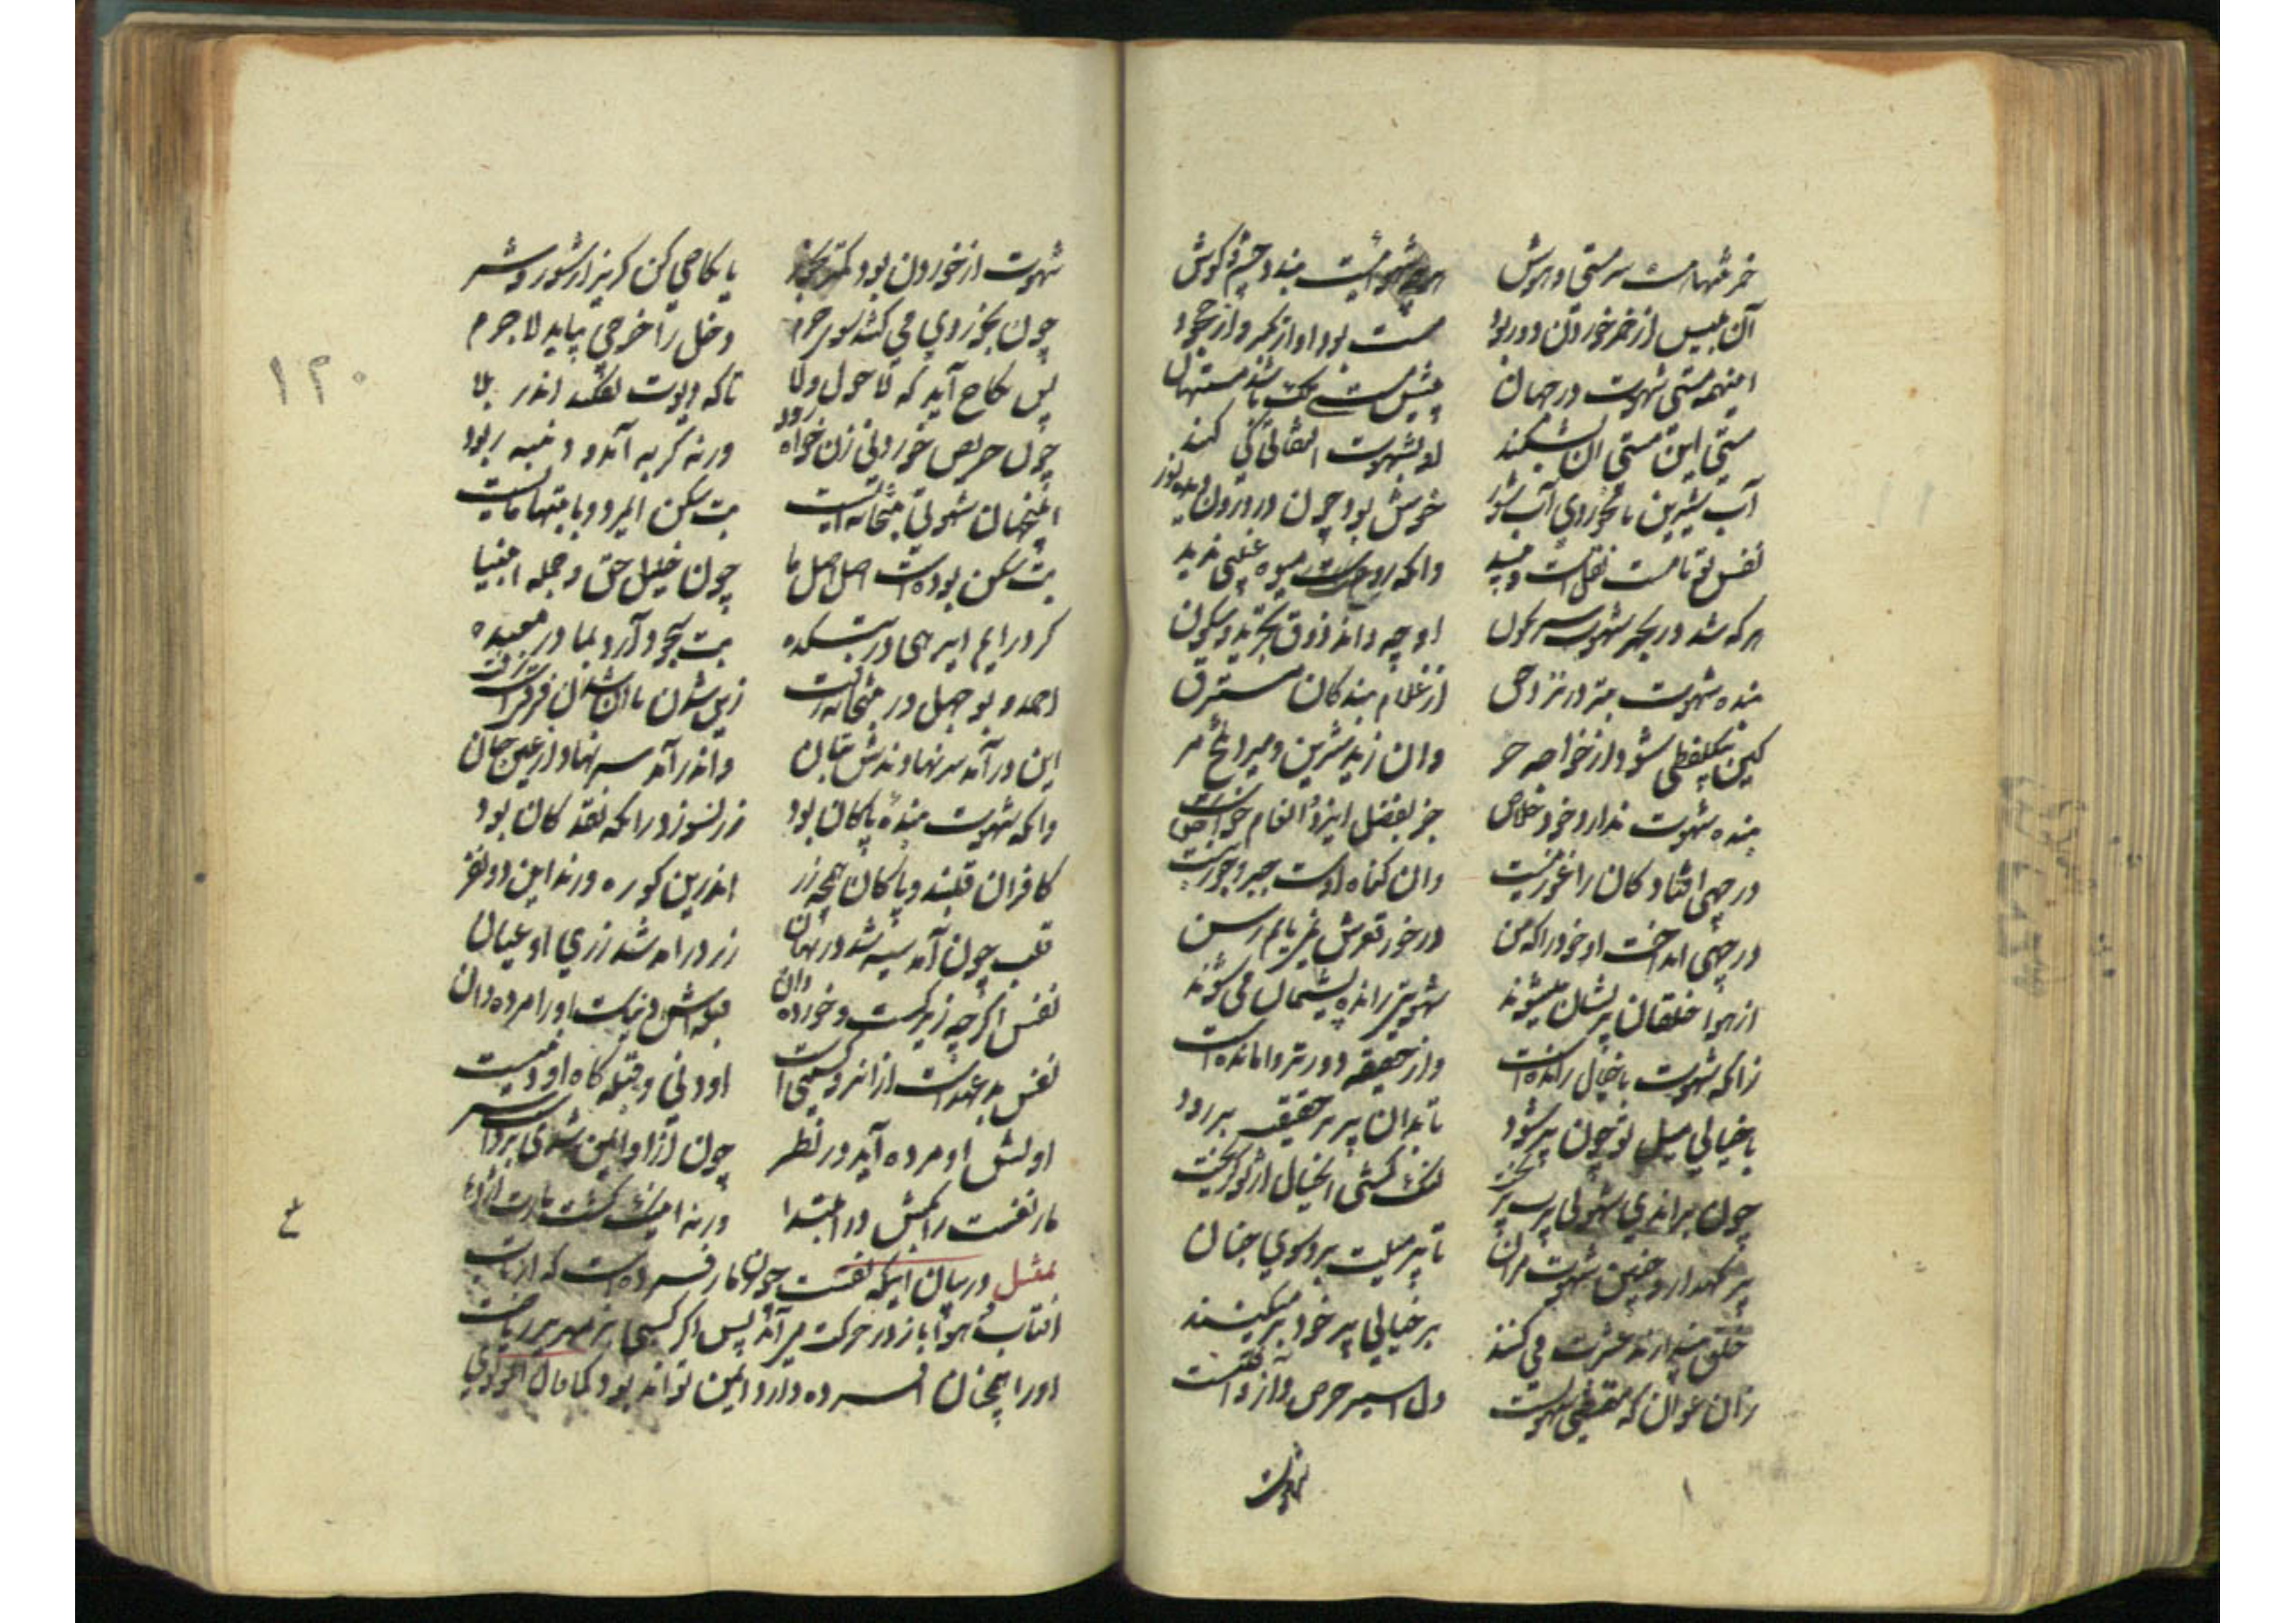 خمر تنهاست سرمستی و هوش
هرچه شهوانیست بندد چشم و گوش
آن بلیس از خمر خوردن دور بود
مست بود او از تکبر وز جحود
اینهمه مستی شهوت در جهان
پیش مستی ملک باشد مستهان
مستی این مستی آن بشکند
او بشهوت التفاتی کی کند
آب شیرین تا نخوردی آب شور
خوش بود چون در درون دیده نور
نفس تو تا مست نقلست و نبید
وانکه روحت میوه غیبی ندید
هرکه شد در بحر شهوت سرنگون
او چه داند ذوق
بنده شهوت بتر در نزد حق
از غلام بندگان مسترق
کین بیکلفظی شود از خواجه حر
وان زید شیرین و میرد تلخ مر
بنده شهوت ندارد خود خلاص
جز بفضل ایزد و انعام خاص
در چهی افتاد کان را غور نیست
وان گناه اوست جبر و جور نیست
در چهی انداخت او خود را که من
در خور قعرش نمی یابم رسن
از هوا خلقان پریشان میشوند
شهوتی رانده پشیمان می شوند
زانکه شهوت با خیالی رانده است
وز حقیقه دورتر وامانده است
با خیالی میل تو چون پر شود
تا بدان پر بر حقیقه بر رود
چون براندی شهوتی پرت بریخت
لنگ گشتی آنخیال از تو گریخت
پر نگهدار و چنین شهوت مران
تا پر میلت برد سوی جنان
خلق پندارند عشرت می کنند
بر خیالی پر خود بر میکنند
زان عوان که مقتضی شهوتست
دل اسیر حرص و آز و آفتست
شهوت
شهوت از خوردن بود کمتر بخور
یا نکاحی کن گریز از شور و شر
چون بخوردی می کشد سوی حرم
دخل را خرجی بباید لاجرم
پس نکاح آید که لا حول و لا
تا که دیوت نفکند اندر بلا
چون حریص خوردنی زن خواه زود
ورنه گربه آمد و دنبه ربود
اینجهان شهوتی بتخانه ایست
بت شکن بودست اصل اصل ما
چون خلیل حق و جمله انبیا
گر درآیم ای رهی در بتکده
بت سجود آرد بما در معبده
احمد و بوجهل در بتخانه رفت
زین شدن تا آن شدن فرقیست زفت
این در آید سر نهادندش بتان
واندر آید سر نهاد از عین جان
وانکه شهوت بنده پاکان بود
زر نسوزد زانکه نقد کان بود
کافران قلبند و پاکان همچو زر
اندرین کوره درند این دو نفر
قلب چون آمد سیه شد در زمان
زر درآمد شد زری او عیان
نفس اگرچه زیرکست و خورده دان
قبله اش دنیاست او را مرده دان
او دنی و قبله گاه او دنیست
اولش او مرده آید در نظر
چون از او ایمن شوی
مار نفست را بکش در ابتدا
ورنه اینک گشت مارت اژدها
تمثیل در بیان اینکه نفست چون مار فسرده است که از تاب
آفتاب هوا باز در حرکت می آید پس اگر کسی
او را همچنان افسرده دارد ایمن تواند بود کما قال المولوی
ع
۱۲۰